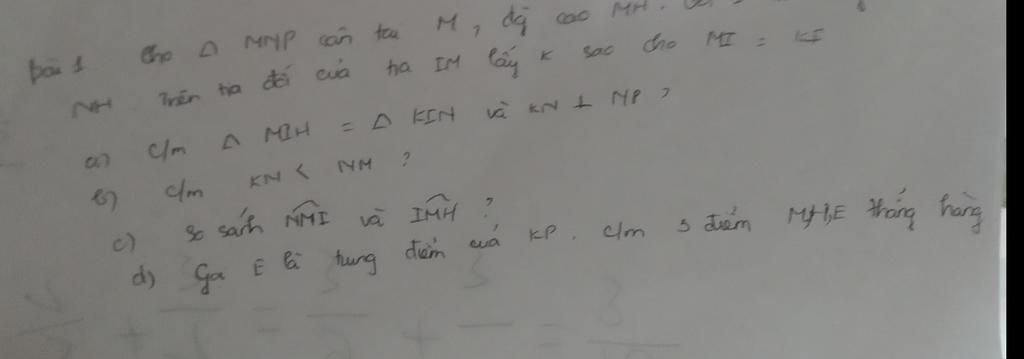 bài 1. Cho △ MNP cân tại M, đg cao MH.
NH. Trên tia đối của tia IM lấy K sao cho MI = KI
a) C/m △ MIH = △ KIN và KN ⊥ NP ?
b) C/m KN < NM ?
c) So sánh NMI và IMH ?
d) Gọi E là trung điểm của KP. C/m 3 điểm M,H,E thẳng hàng